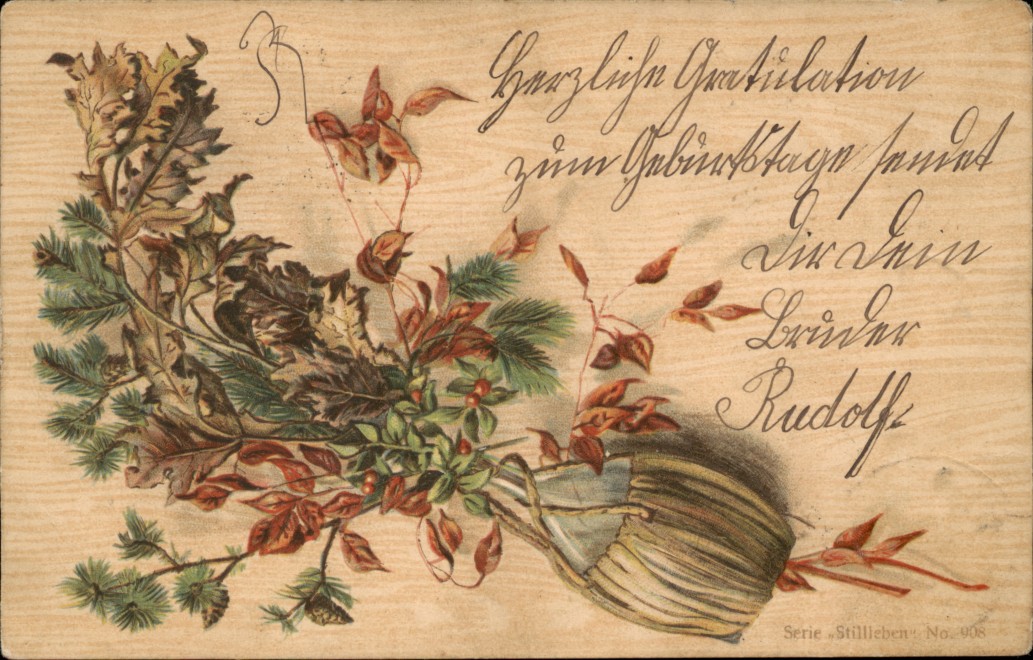 Herzliche Gratulation
zum Geburtstage sendet
Dir Dein
Bruder
Rudolf.
Serie „Stillleben“ No. 908